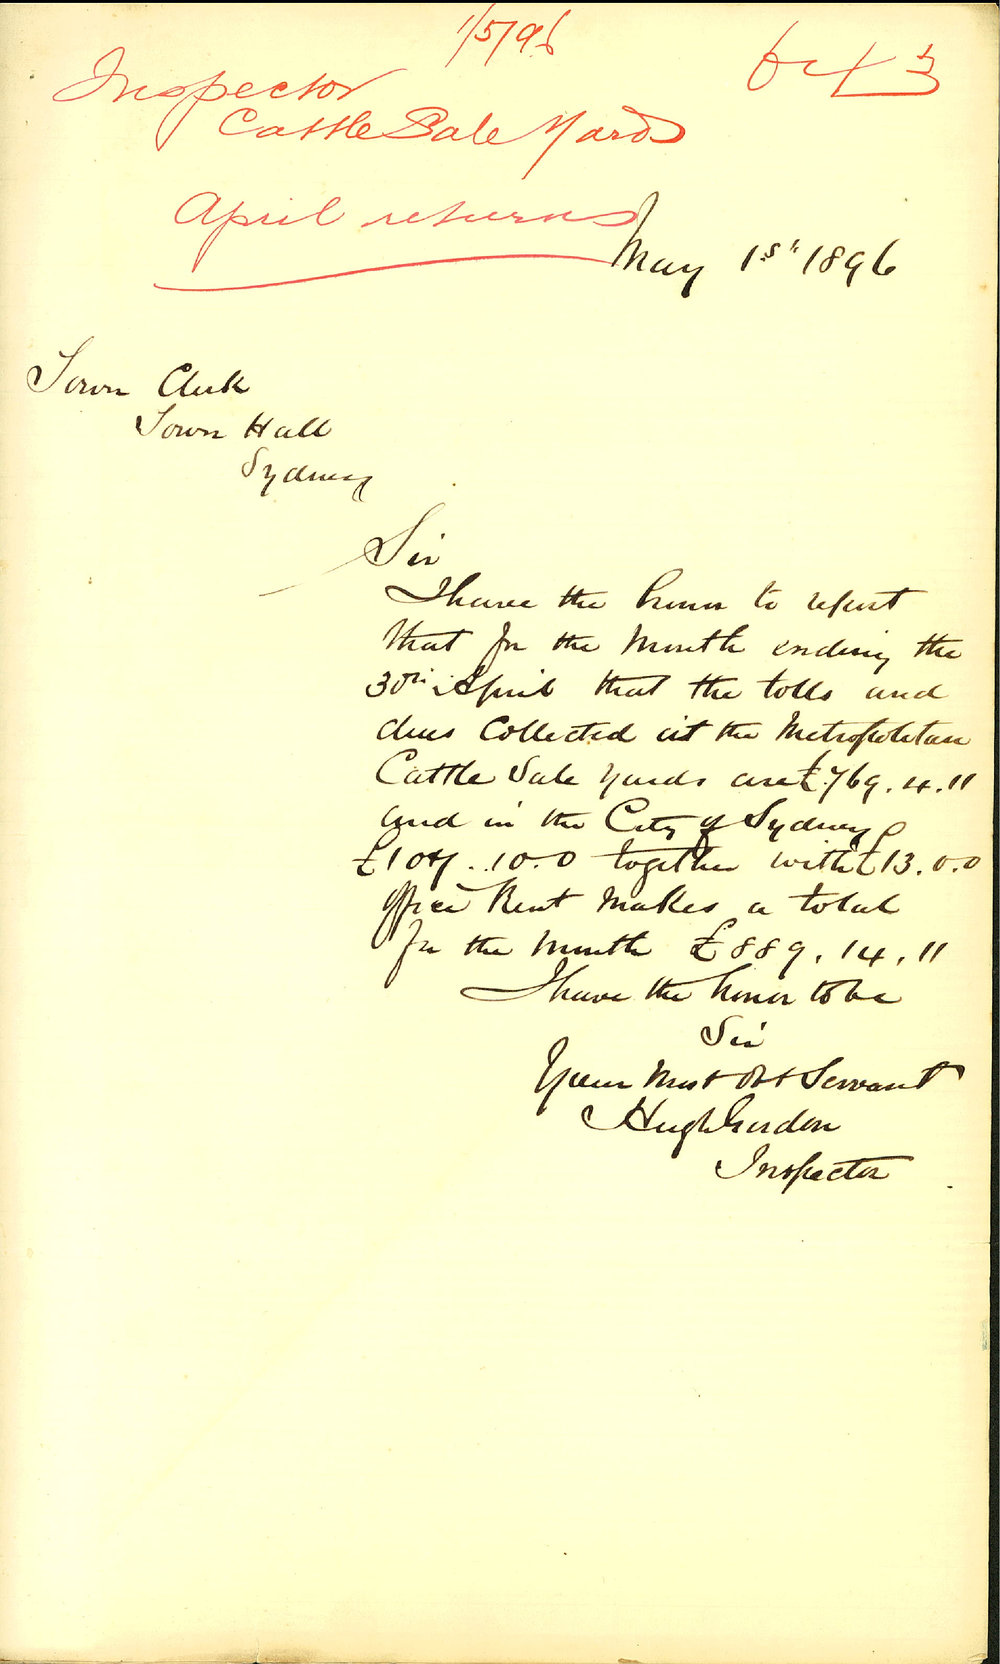 1/5/96
643
Inspector
Cattle Sale Yards
April returns
May 1st 1896
Town Clerk
Town Hall
Sydney
Sir
I have the honor to report
that for the Month ending the
30th April that the tolls and
dues Collected at the Metropolitan
Cattle Sale Yards are £769.4.11
and in the City of Sydney
£107.10.0 together with £13.0.0
Office Rent Makes a total
for the Month £889.14.11
I have the honor to be
Sir
Your Most Obt Servant
Hugh Gordon
Inspector